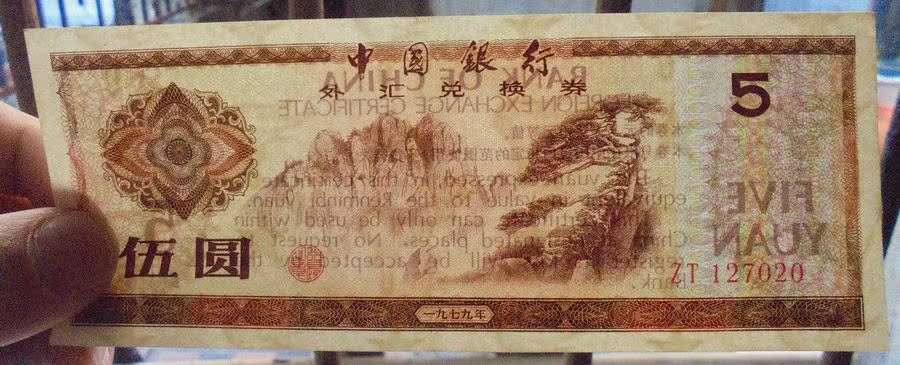 中國銀行
BANK OF CHINA
外汇兑换券
FOREIGN EXCHANGE CERTIFICATE
5
yuan expressed in this certificate
equivalent in value to the Renminbi yuan.
can only be used within
designated places. No request
will be accepted by the
FIVE
YUAN
伍圆
ZT 127020
一九七九年